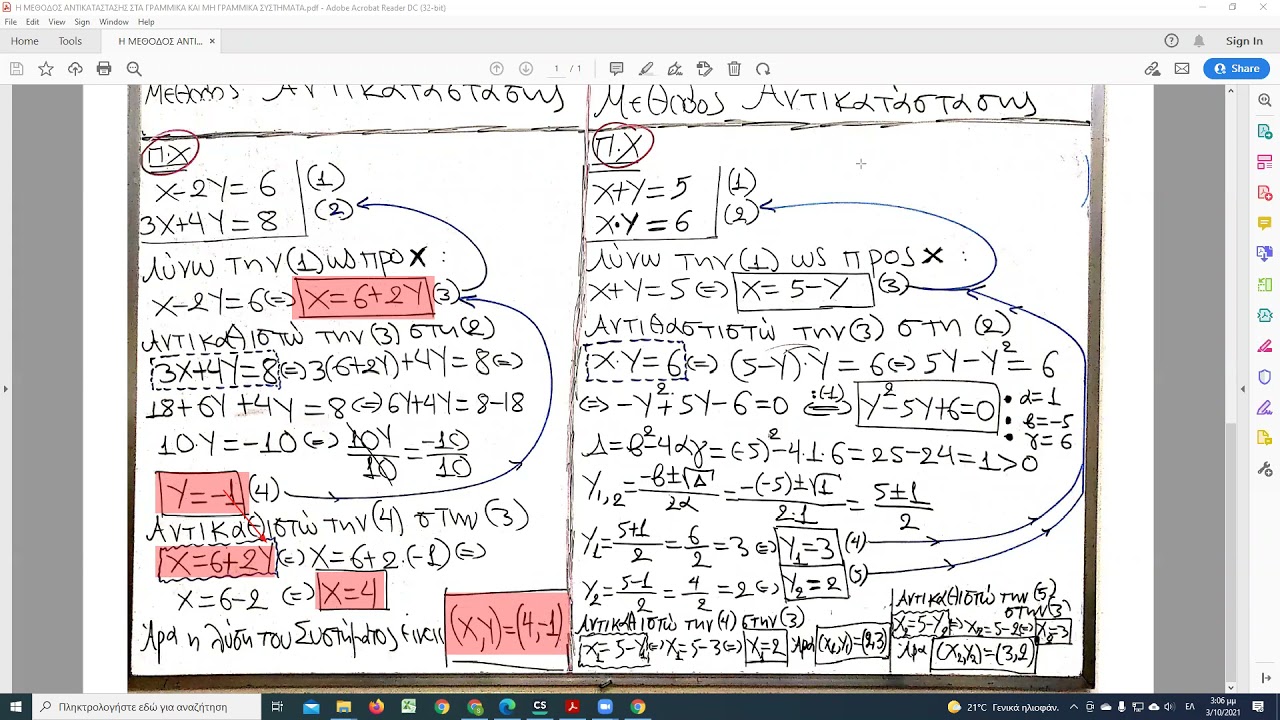 Η ΜΕΘΟΔΟΣ ΑΝΤΙΚΑΤΑΣΤΑΣΗΣ ΣΤΑ ΓΡΑΜΜΙΚΑ ΚΑΙ ΜΗ ΓΡΑΜΜΙΚΑ ΣΥΣΤΗΜΑΤΑ.pdf - Adobe Acrobat Reader DC (32-bit)
File Edit View Sign Window Help
Home Tools Η ΜΕΘΟΔΟΣ ΑΝΤΙ... × Sign In
1 / 1 Share
Μέθοδος Αντικατάστασης
Π.Χ
X-2Y=6 (1)
3X+4Y=8 (2)
Λύνω την (1) ως προ X :
X-2Y=6⇔ X=6+2Y (3)
Αντικαθιστώ την (3) στη (2)
3X+4Y=8 ⇔3(6+2Y)+4Y=8⇔
18+6Y+4Y=8⇔6Y+4Y=8-18
10·Y=-10⇔ 10Y/10=-10/10
Y=-1 (4)
Αντικαθιστώ την (4) στην (3)
X=6+2Y ⇔ X=6+2·(-1)⇔
X=6-2 ⇔ X=4
Άρα η λύση του συστήματος είναι (X,Y)=(4,-1)
Μέθοδος Αντικατάστασης
Π.Χ
X+Y=5 (1)
X·Y=6 (2)
Λύνω την (1) ως προς X :
X+Y=5⇔ X=5-Y (3)
Αντιθαστιστώ την (3) στη (2)
X·Y=6 ⇔ (5-Y)·Y=6⇔5Y-Y²=6
⇔-Y²+5Y-6=0 :(-1) ⇔ Y²-5Y+6=0 • α=1
• β=-5
• γ=6
Δ=β²-4αγ=(-5)²-4·1·6=25-24=1>0
Y1,2=-β±√Δ/2α=-(-5)±√1/2·1=5±1/2
Y1=5+1/2=6/2=3⇔ Y1=3 (4)
Y2=5-1/2=4/2=2⇔ Y2=2 (5)
Αντικαθιστώ την (4) στην (3)
X1=5-Y1⇔X1=5-3⇔ X1=2 Άρα (X1,Y1)=(2,3)
Αντικαθιστώ την (5)
στην (3)
X2=5-Y2⇔X2=5-2⇔ X2=3
Άρα (X2,Y2)=(3,2)
Πληκτρολογήστε εδώ για αναζήτηση
21°C Γενικά ηλιοφάν. ΕΛ 3:06 μμ
3/10/2021